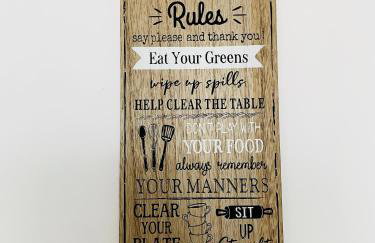 Rules
say please and thank you
Eat Your Greens
wipe up spills
HELP CLEAR THE TABLE
DON'T PLAY WITH
YOUR FOOD
always remember
YOUR MANNERS
CLEAR
YOUR
PLATE
SIT
UP